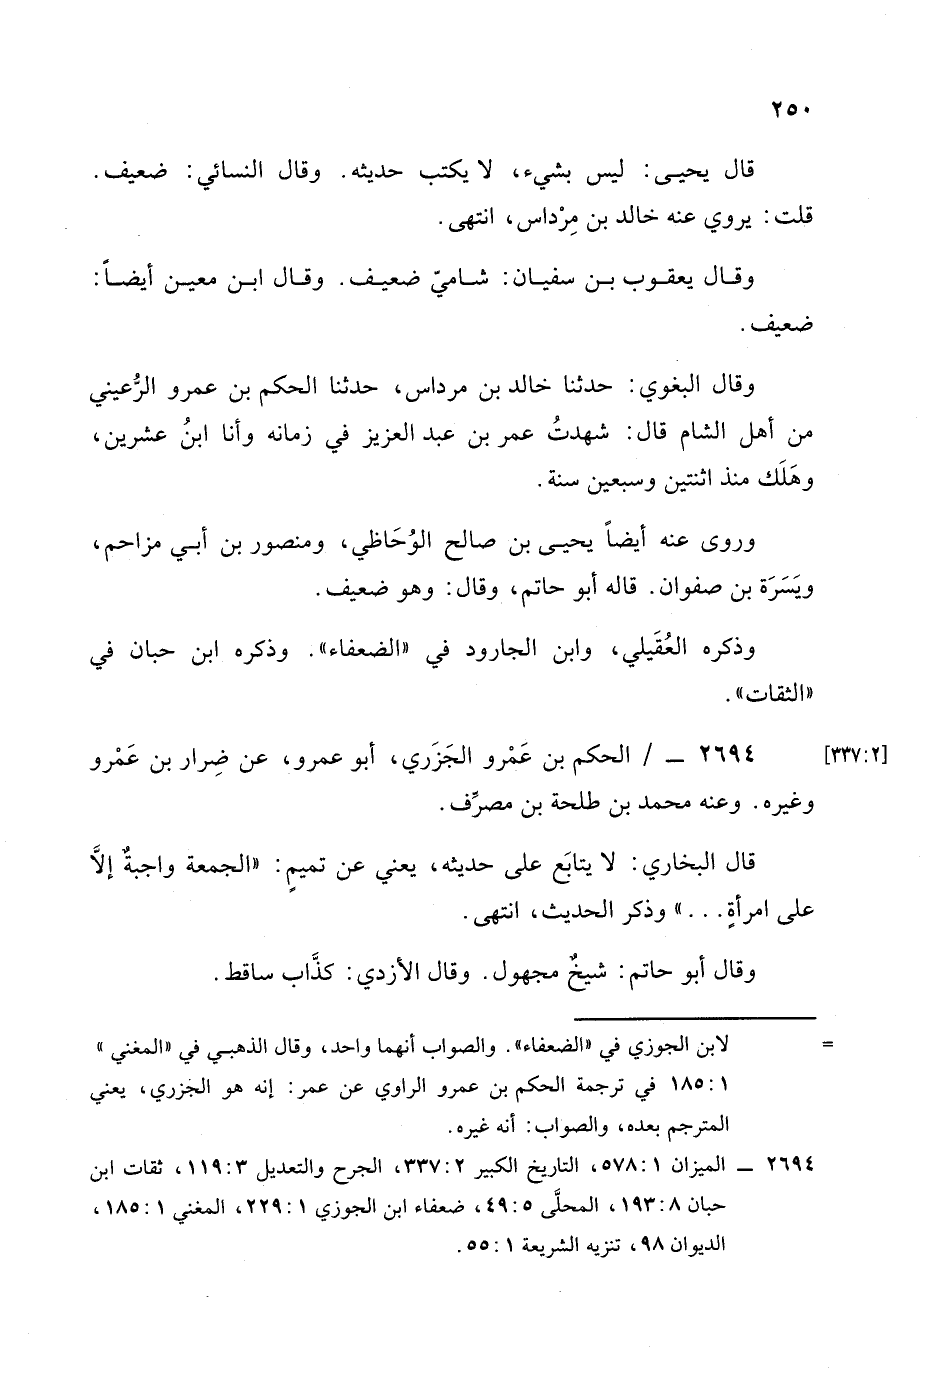 ٢٥٠
قال يحيـى: ليس بشيء، لا يكتب حديثه. وقال النسائي: ضعيف.
قلت: يروي عنه خالد بن مِرْداس، انتهى.
وقـال يعقـوب بـن سفيـان: شـاميّ ضعيـف. وقـال ابـن معيـن أيضـاً:
ضعيف.
وقال البغوي: حدثنا خالد بن مرداس، حدثنا الحكم بن عمرو الرُّعيني
من أهل الشام قال: شهدتُ عمر بن عبد العزيز في زمانه وأنا ابنُ عشرين،
وهَلَك منذ اثنتين وسبعين سنة.
وروى عنه أيضاً يحيـى بن صالح الوُحَاظي، ومنصور بن أبـي مزاحم،
ويَسَرَة بن صفوان. قاله أبو حاتم، وقال: وهو ضعيف.
وذكره العُقَيلي، وابن الجارود في «الضعفاء». وذكره ابن حبان في
«الثقات».
[٣٣٧:٢] ٢٦٩٤ ــ / الحكم بن عَمْرو الجَزَري، أبو عمرو، عن ضِرار بن عَمْرو
وغيره. وعنه محمد بن طلحة بن مصرِّف.
قال البخاري: لا يتابَع على حديثه، يعني عن تميمٍ: «الجمعة واجبةٌ إلَّا
على امرأةٍ...» وذكر الحديث، انتهى.
وقال أبو حاتم: شيخٌ مجهول. وقال الأزدي: كذَّاب ساقط.
= لابن الجوزي في «الضعفاء». والصواب أنهما واحد، وقال الذهبـي في «المغني»
١:١٨٥ في ترجمة الحكم بن عمرو الراوي عن عمر: إنه هو الجزري، يعني
المترجم بعده، والصواب: أنه غيره.
٢٦٩٤ ــ الميزان ١:٥٧٨، التاريخ الكبير ٢:٣٣٧، الجرح والتعديل ٣:١١٩، ثقات ابن
حبان ٨:١٩٣، المحلَّى ٥:٤٩، ضعفاء ابن الجوزي ١:٢٢٩، المغني ١:١٨٥،
الديوان ٩٨، تنزيه الشريعة ١:٥٥.